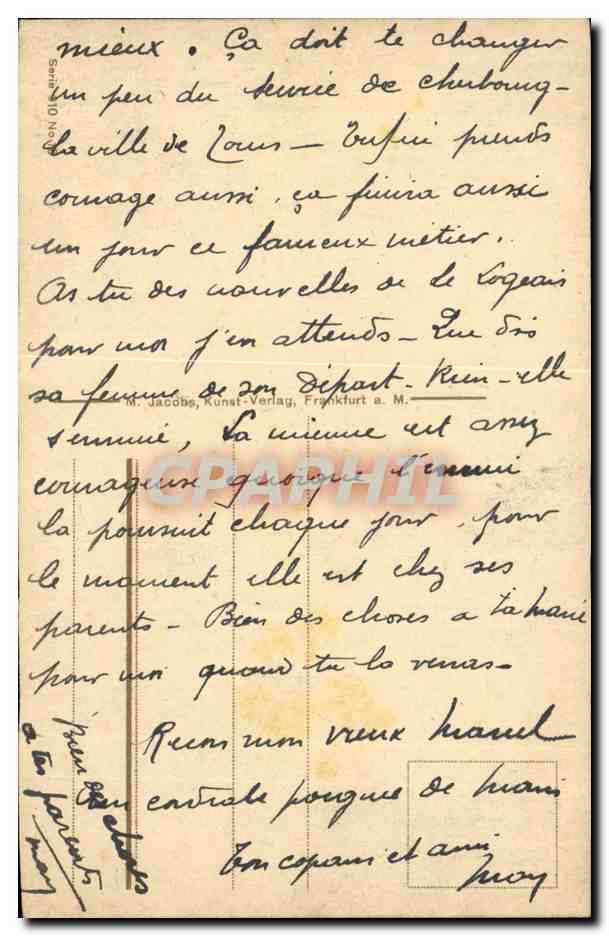 mieux. Ça doit te changer
un peu du service de cherbourg -
la ville de Tours - Enfin prends
courage aussi, ça finira aussi
un jour ce fameux métier.
As tu des nouvelles de Le Logeais
pour moi j'en attends - Que dis
sa femme de son départ - Rien - elle
M. Jacobs, Kunst-Verlag, Frankfurt a. M.
s'ennuie, La mienne est assez
courageuse quoique l'ennui
CPARPHIL
la poursuit chaque jour, pour
le moment elle est chez ses
parents - Bien des choses a ta Marie
pour moi quand tu la verras -
Reçois mon vieux Marcel
une cordiale poignée de main
Ton copain et ami
May
Bien des choses
a tes parents
May
Serie 410 No